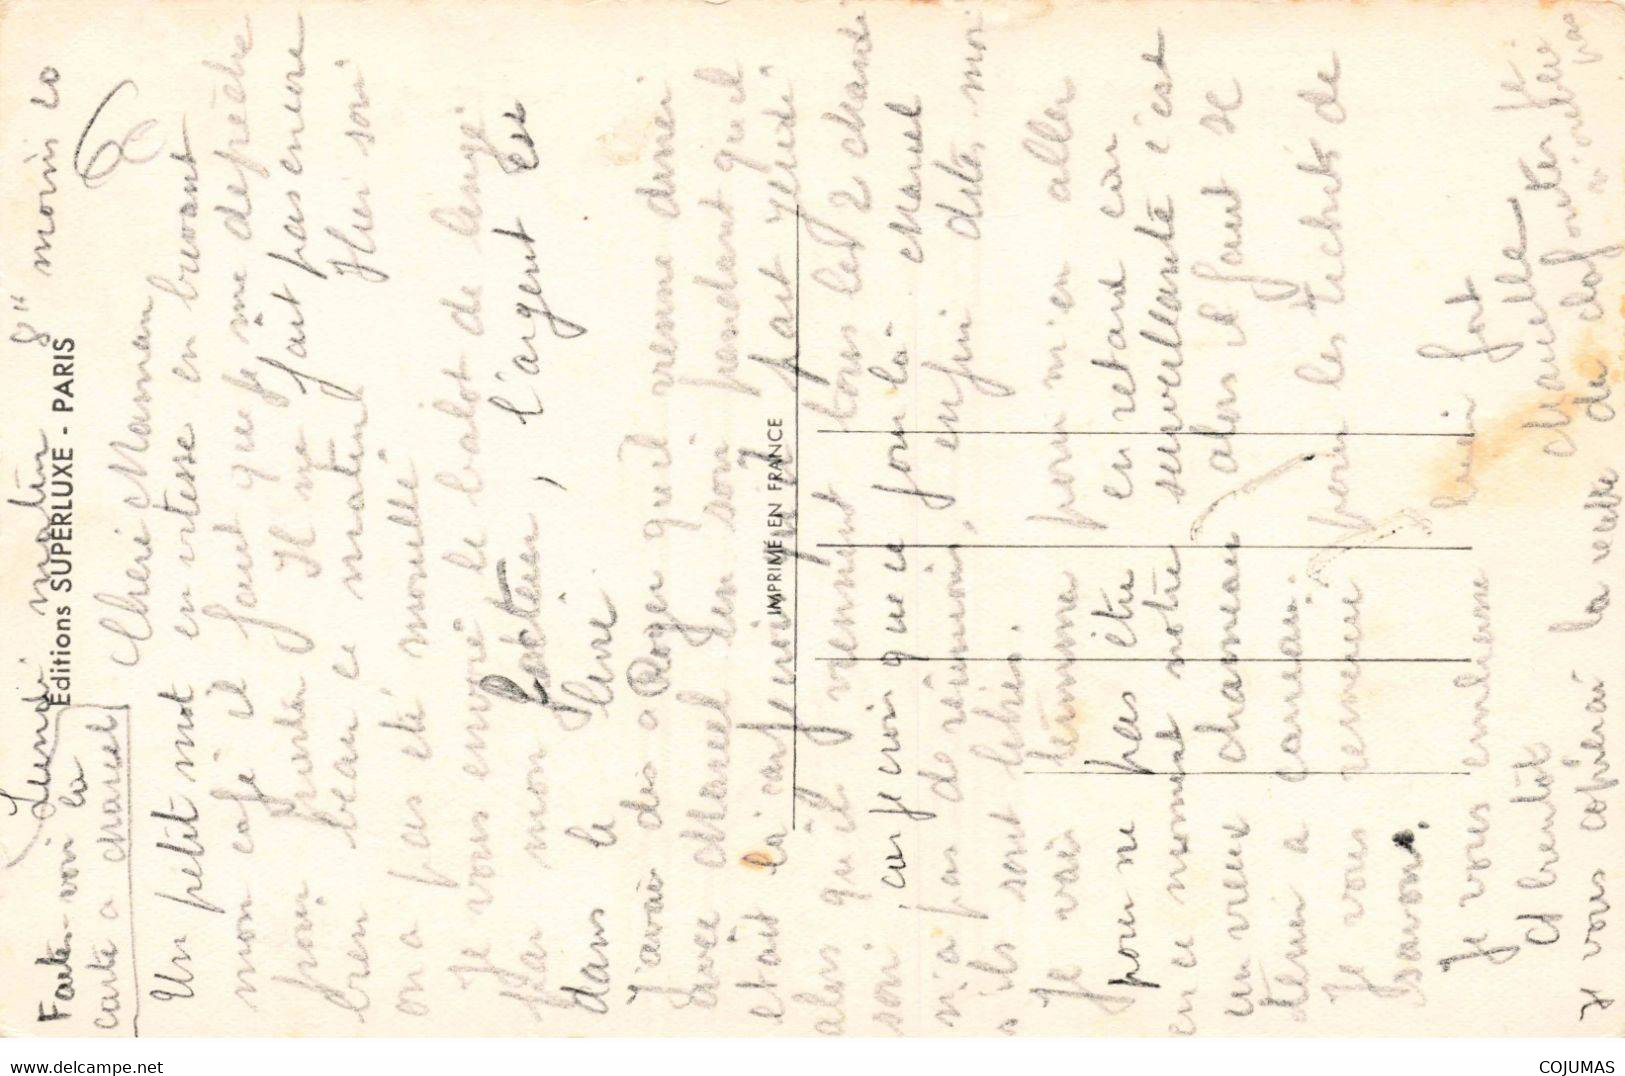 Lundi matin 8" moin 20
Faites voir la
carte a Marcel
Cheri Maman
Un petit mot en vitesse en buvant
mon café il faut que je me depeche
pour Il ne fait pas encore
bien beau ce matin Hier soir
on a pas été mouillé
Je vous envoie le balot de linge
par mon facteur, l'argent est
dans le
J'avais dis a Roger qu'il vienne diner
avec Marcel soir pendant qu'il
etait la car part jeudi
alors qu'il viennent tous les 2
soir car je crois que ce jour la Marcel
n'a pas de réunion, enfin dites moi
s'ils sont libres.
Je vais terminer pour m'en aller
pour ne pas être en retard car
en ce moment notre surveillante c'est
un vieux chameau alors il faut se
tenir a carreau.
Je vous remercie pour les tickets de
savon.
Je vous embrasse bien fort
A bientot
Je vous copierai la recette du clafoutis
Editions SUPERLUXE - PARIS
IMPRIMÉ EN FRANCE
COJUMAS
www.delcampe.net